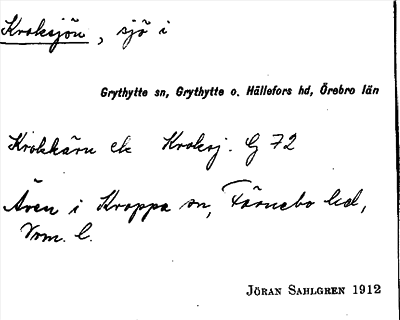 Kroksjön, sjö i
Grythytte sn, Grythytte o. Hällefors hd, Örebro län
Krokkärn ek Kroksj. G 72
Även i Kroppa sn, Färnebo hd,
Vrm. l.
JÖRAN SAHLGREN 1912